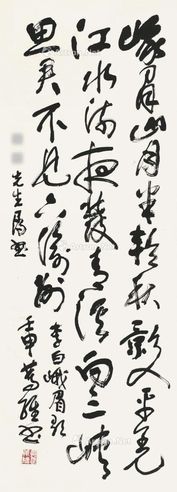 峨眉山月半轮秋影入平羌
江水流夜发青溪向三峡
思君不见下渝州
李白峨眉歌
先生属书
壬申